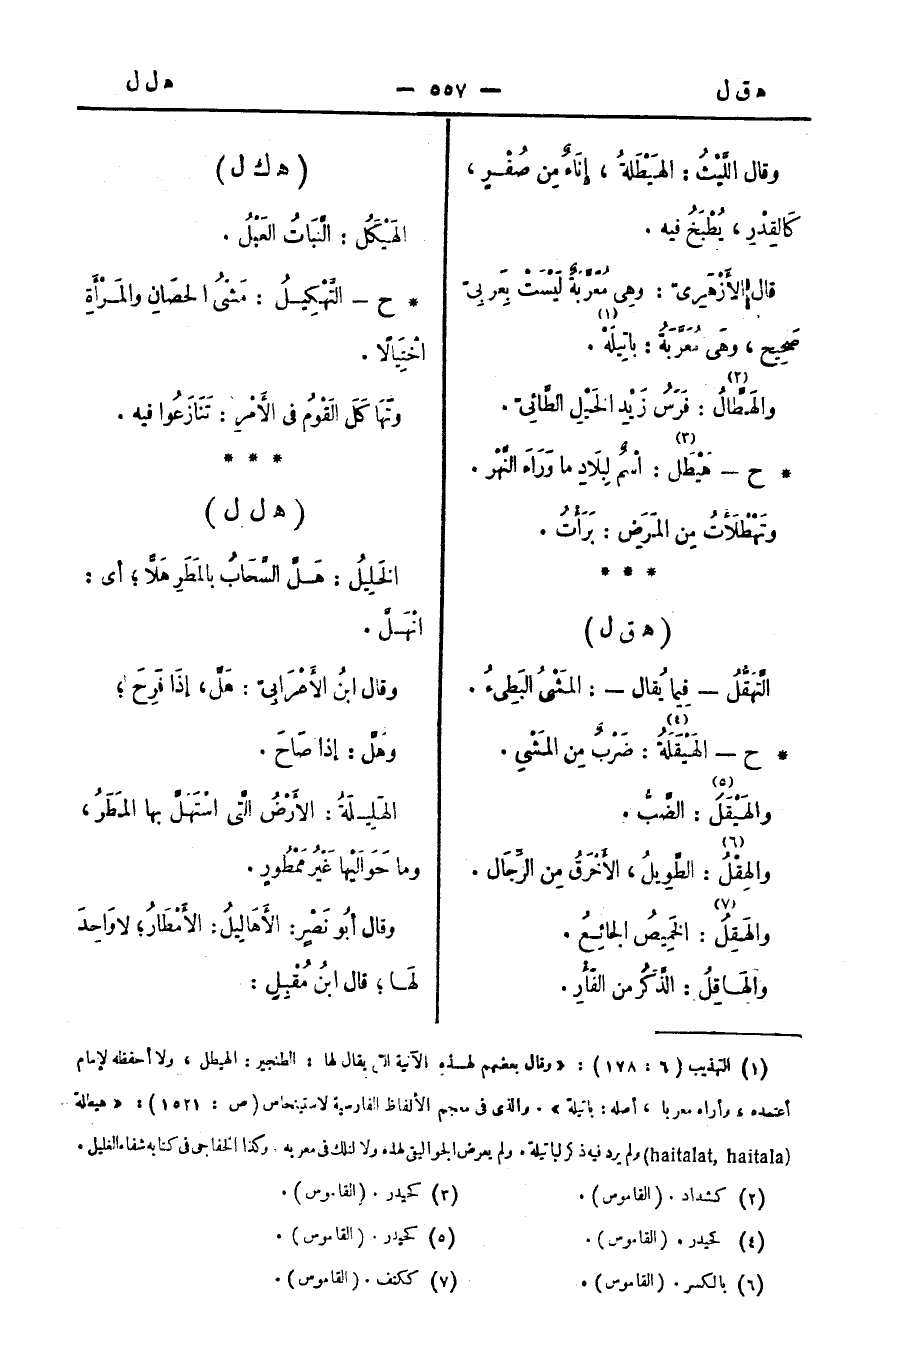 ه ق ل — ٥٥٧ — ه ل ل
وقال اللَّيْثُ : الهَيْطَلَةُ ، إِنَاءٌ مِن صُفْرٍ ،
كَالقِدْرِ ، يُطْبَخُ فيه .
قال الأَزْهَرِىّ : وهِى مُعَرَّبَةٌ لَيْسَتْ بِعَربِىّ
صَحِيحٍ ، وهَى مُعَرَّبَةُ : باتِيلَهْ (١) .
والهَطَّالُ (٢) : فَرَسُ زَيْدِ الخَيْلِ الطَّائِىّ .
* ح — هَيْطَل (٣) : اسْمٌ لِبِلَادِ ما وَرَاءَ النَّهْر .
وتَهَطْلَأْتُ مِن المَرَضِ : بَرَأْتُ .
* * *
( ه ق ل )
التَّهَقُّلُ — فِيما يُقال — : المَشْىُ البَطِىءُ .
* ح — الهَيْقَلَةُ (٤) : ضَرْبٌ مِن المَشْيِ .
والهَيْقَلُ (٥) : الضَّبُّ .
والهِقْلُ (٦) : الطَّوِيلُ ، الأَخْرَقُ مِن الرِّجَال .
والهَقِلُ (٧) : الخَمِيصُ الجَائِعُ .
والهَاقِلُ : الذَّكَرُ من الفَأْرِ .
( ه ك ل )
الهَيْكَلُ : النَّبَاتُ العَبْلُ .
* ح — التَّهْكِيلُ : مَشْىُ الحِصَانِ والمَرْأَةِ
اخْتِيَالًا .
وتَهَاكَلَ القَوْمُ فى الأَمْرِ : تَنَازَعُوا فيه .
* * *
( ه ل ل )
الخَلِيلُ : هَلَّ السَّحَابُ بالمَطَرِ هَلًّا ؛ أى :
انْهَلَّ .
وقال ابنُ الأَعْرَابِىّ : هَلَّ ، إذَا فَرِحَ ؛
وهَلَّ : إذا صَاحَ .
الهَلِيلَةُ : الأَرْضُ الَّتى اسْتَهَلَّ بها المَطَرُ ،
وما حَوَالَيْها غَيْرُ مَمْطُورٍ .
وقال أَبُو نَصْرٍ : الأَهَالِيلُ : الأَمْطَارُ ؛ لا وَاحِدَ
لَهَا ؛ قال ابنُ مُقْبِلٍ :
(١) التهذيب ( ٦ : ١٧٨ ) : « وقال بعضهم لهذه الآنية التى يقال لها : الطنجير : الهيطل ، ولا أحفظه لإمام
أعتمده ، وأراه معربا ، أصله : باتيلة » . والذى فى معجم الألفاظ الفارسية لاستينجاس ( ص : ١٥٢١ ) : « هيطلة
(haitalat, haitala) ولم يرد فيه ذكر لباتيلة . ولم يعرض الجواليقى لهذه ولا لتلك فى معربه . وكذا الخفاجى فى كتابه شفاء الغليل .
(٢) كشداد . (القاموس) . (٣) كحيدر . (القاموس) .
(٤) كحيدر . (القاموس) . (٥) كحيدر . (القاموس) .
(٦) بالكسر . (القاموس) . (٧) ككتف . (القاموس) .